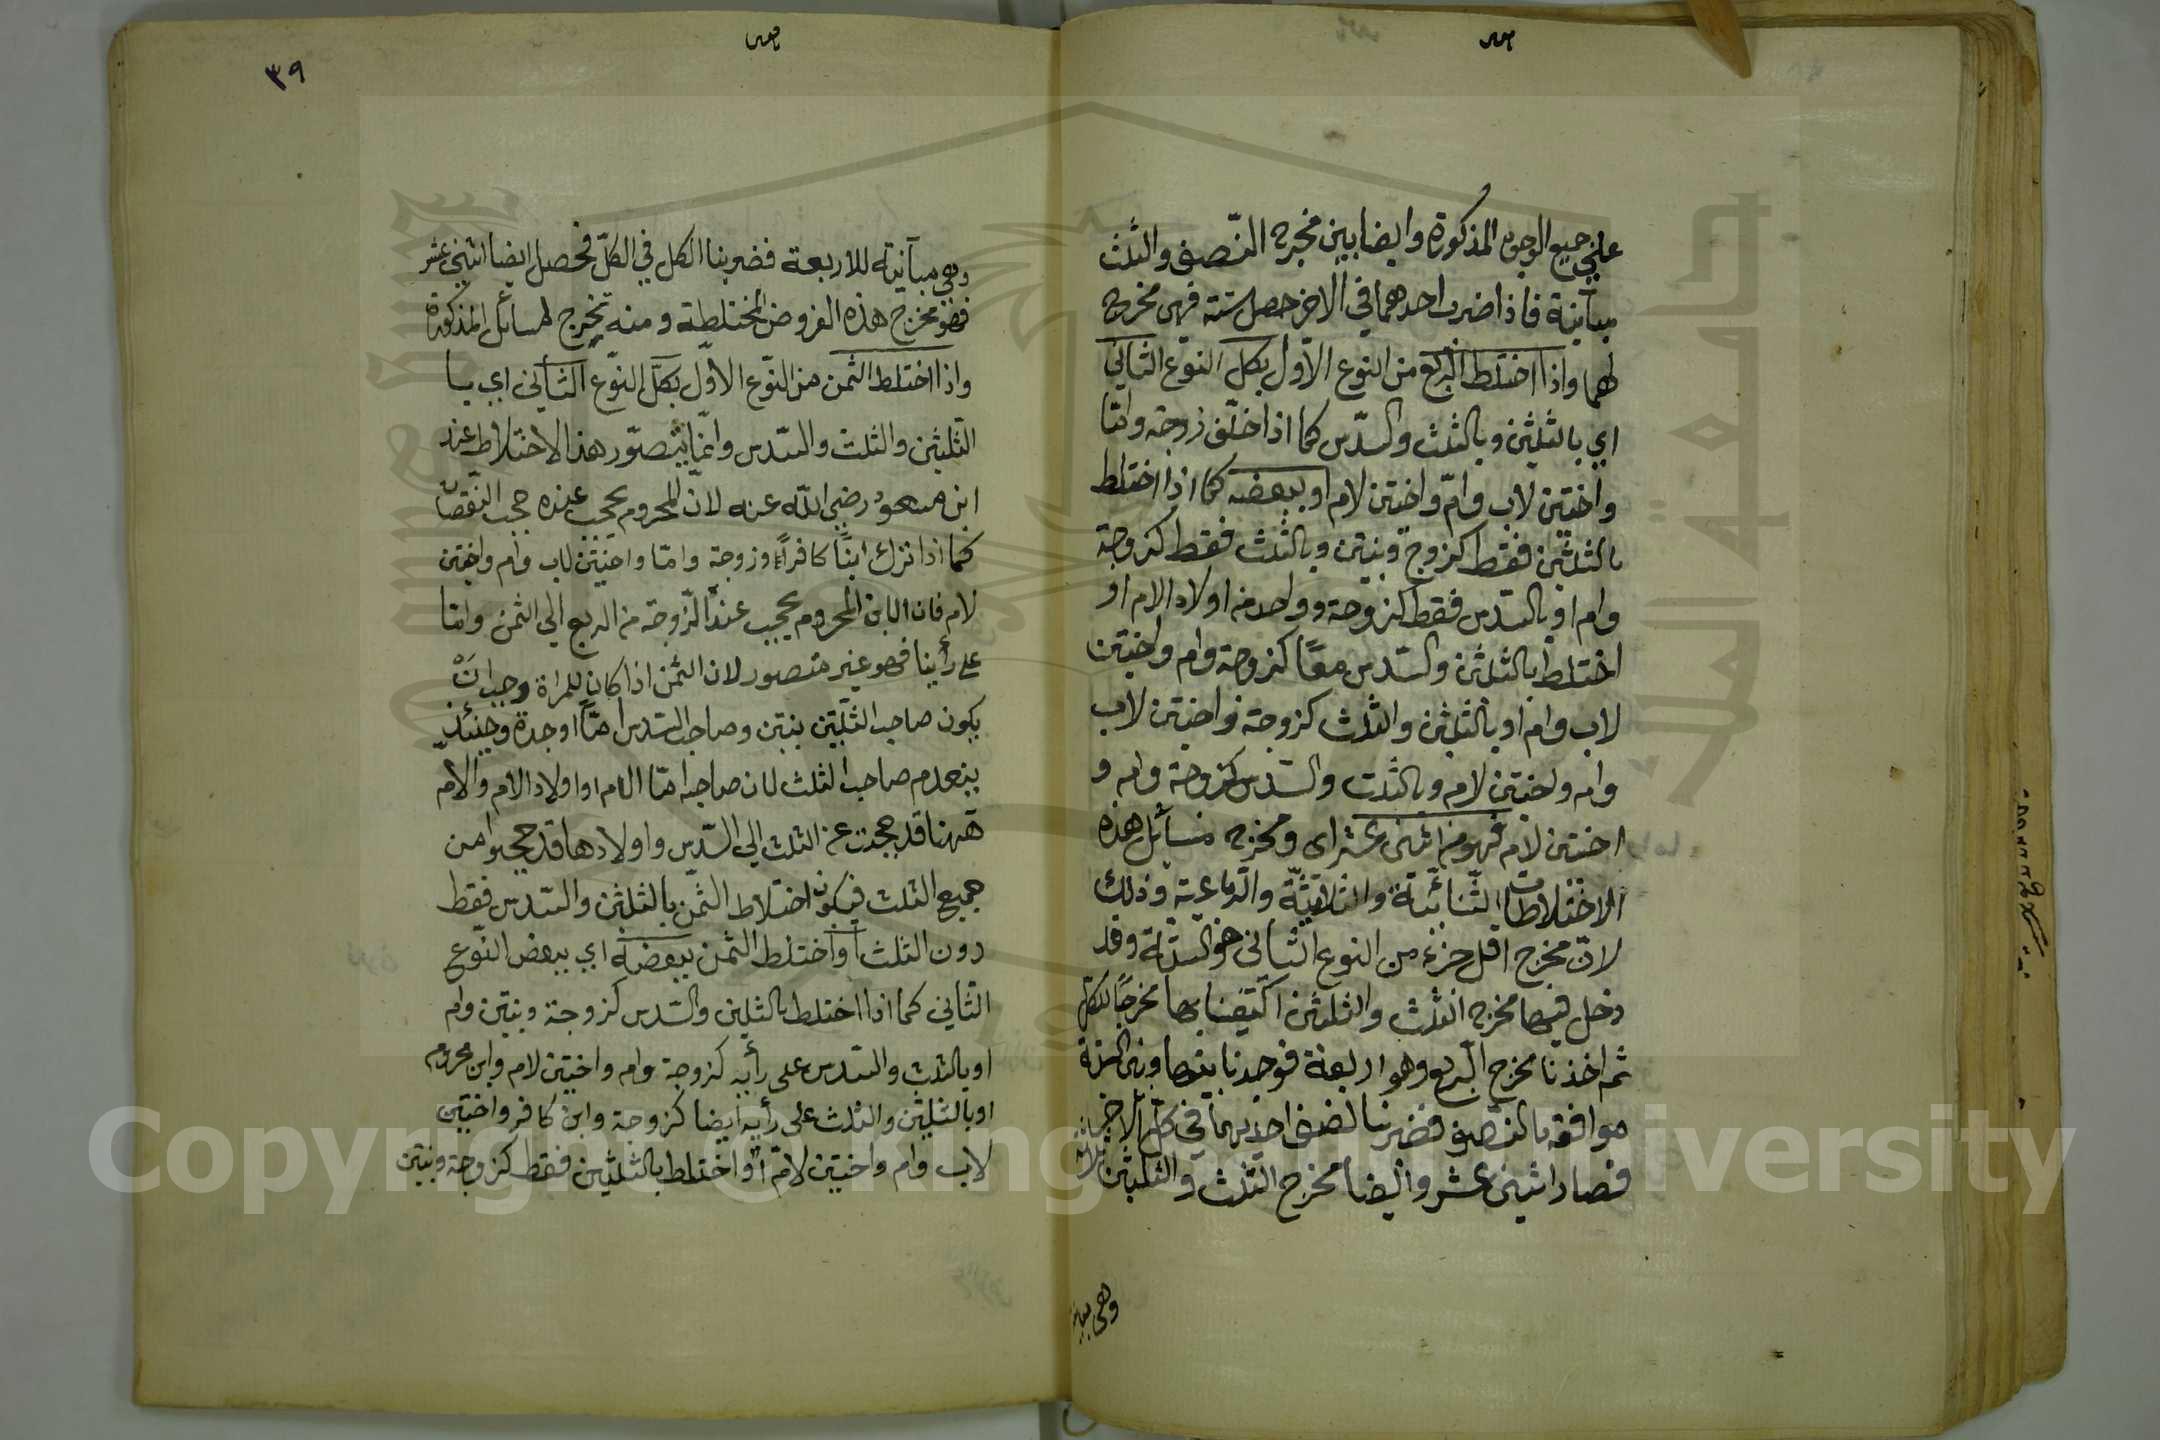 على جميع الوجوه المذكورة وايضا بين مخرج النّصف والثّلث
مباينة فاذا ضرب احدهما في الاخر حصل ستة فهى مخرج
لهما واذا اختلط الرّبع من النوع الاوّل بكل النّوع الثاني
اي بالثلثين وبالثلث والسّدس كما اذا خلّف زوجة وامّا
واختين لاب وامّ واختين لام او ببعضه كما اذا اختلط
بالثلثين فقط كزوج وبنتين وبالثلث فقط كزوجة
وام او بالسّدس فقط كزوجة وواحد من اولاد الام او
اختلط بالثلثين والسّدس معًا كزوجة وام واختين
لاب وام او بالثلثين والثلث كزوجة واختين لاب
وام واختين لام وبالثلث والسّدس كزوجة وام و
اختين لام فهو من اثنى عشر اى ومخرج مسائل هذه
الاختلاطات الثّنائيّة والثلاثيّة والرّباعية وذلك
لانّ مخرج اقل جزء من النوع الثّاني هو السّتة وقد
دخل فيها مخرج الثلث والثلثين اكتفينا بها مخرجًا للكل
ثم اخذنا مخرج الرّبع وهو اربعة فوجدنا بينها وبين الستة
موافقة بالنّصف فضربنا نصف احديهما في كلّ الاخر
فصار اثنى عشر وايضا مخرج الثلث والثلثين ثلاثة
وهى مباينة
٣٩
وهي مباينة للاربعة فضربنا الكل في الكلّ فحصل ايضا اثنى عشر
فهو مخرج هذه الفروض المختلطة ومنه تخرج المسائل المذكورة
واذا اختلط الثّمن من النّوع الاوّل بكلّ النّوع الثّاني اي بـا
الثّلثين والثلث والسّدس وانّما يتصوّر هذا الاختلاط عند
ابن مسعود رضي اللّه عنه لانّ المحروم يحجب عنده حجب النّقصان
كما اذا ترك ابنًا كافرًا وزوجة وامّا واختين لاب وام واختين
لام فان الابن المحروم يحجب عنده الزّوجة من الربع الى الثمن وامّا
على رأينا فهو غير متصور لان الثّمن اذا كان للمراة وجب انْ
يكون صاحب الثلثين بنتين وصاحب السّدس امّا او جدة وحينئذ
ينعدم صاحب الثلث لان صاحبه امّا الام او اولاد الام والام
ههنا قد حجبت عن الثلث الى السّدس واولادها قد حجبوا من
جميع الثلث فيكون اختلاط الثّمن بالثلثين والسّدس فقط
دون الثلث او اختلط الثّمن ببعضه اي ببعض النّوع
الثّاني كما اذا اختلط بالثلثين والسّدس كزوجة وبنتين وام
او بالثلث والسّدس على رأيه كزوجة وام واختين لام وابن محروم
او بالثلثين والثلث على رأيه ايضا كزوجة وابن كافر واختين
لاب وام واختين لامّ او اختلط بالثلثين فقط كزوجة وبنتين
جامعة الملك سعود
Copyright © King Saud University